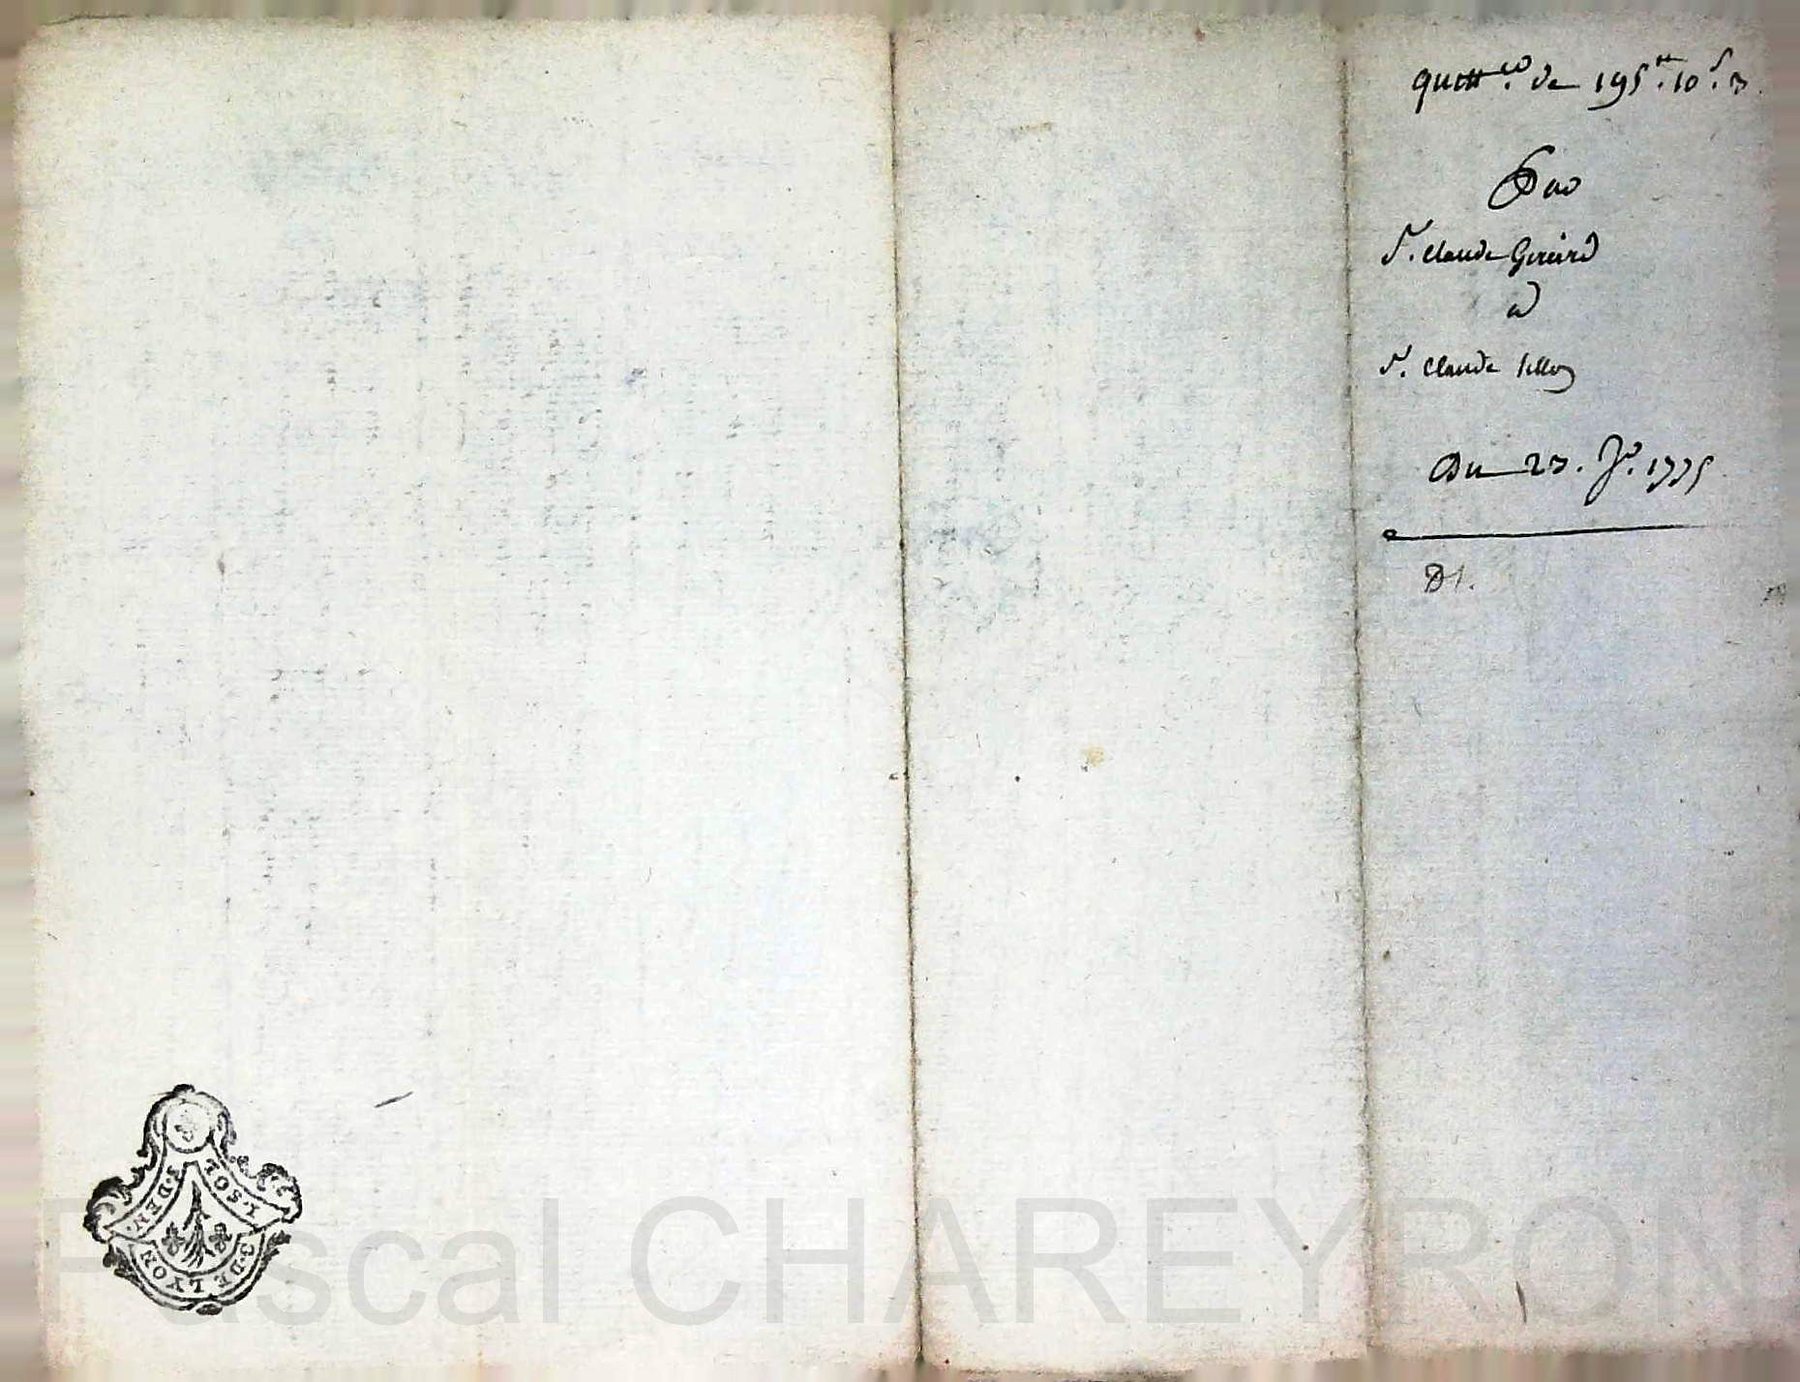 quitt.ce de 195.tt 10.s 3
Par
Sr. Claude Girard
a
Sr. Claude
Du 23. Jer. 1775
D
1.SOL
3.DEN.
G.DE LYON
Pascal CHAREYRON